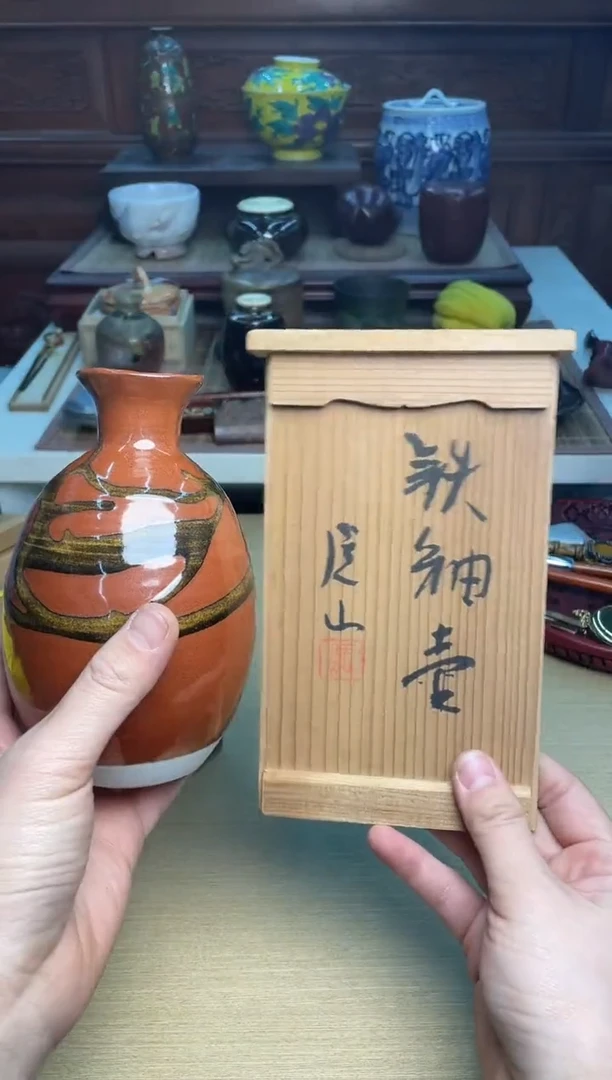 鉄釉壺
山